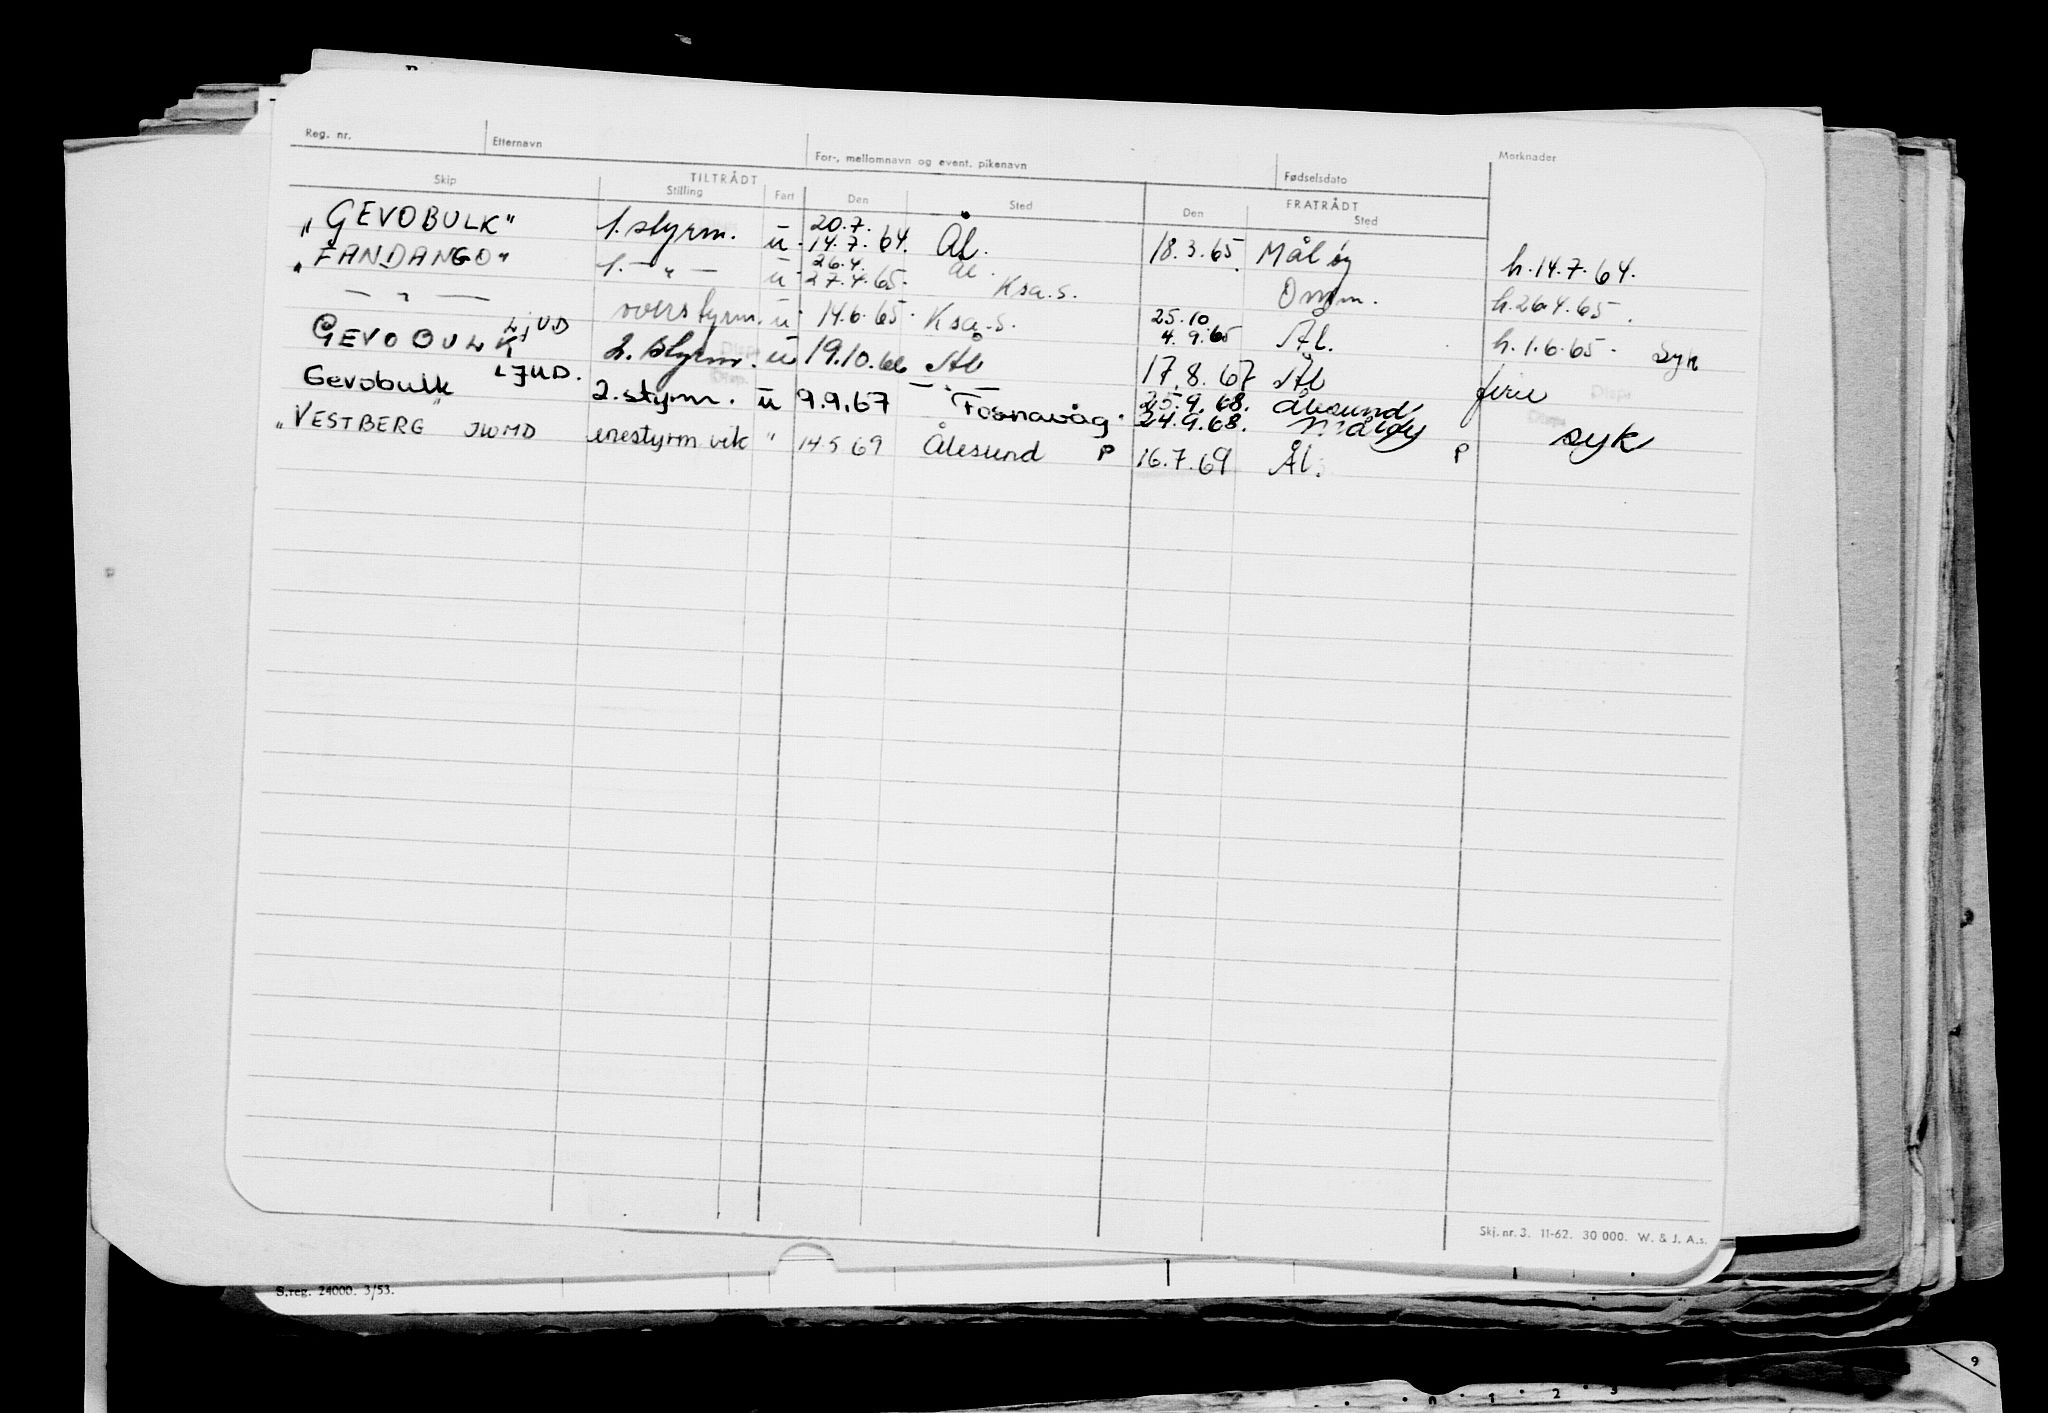 Reg. nr. Etternavn For-, mellomnavn og event. pikenavn Fødselsdato Merknader
Skip TILTRÅDT Stilling Fart Den Sted FRATRÅDT Den Sted
20.7.
„GEVOBULK" 1. styrm. u. 14.7.64. Ål. 18.3.65. Måløy h.14.7.64.
26.4. Ål.
„FANDANGO" 1. — „ — u 27.4.65. Ksa.s. Omm. h.26.4.65.
25.10
— „ — overstyrm. u. 14.6.65. Ksa.s. 4.9.65 Ål. h.1.6.65. Syk
GEVOBULK LJUD 2. styrm. u 19.10.66 Ål 17.8.67 Ål ferie
25.9.68. Ålesund
Gevobulk LJUD. 2. styrm. u 9.9.67 Fosnavåg. 24.9.68. Måløy syk
„VESTBERG" JWMD enestyrm vik " 14.5 69 Ålesund P 16.7.69 Ål. P
Skj. nr. 3. 11-62. 30 000. W. & J. A.s.
S.reg. 24000. 3/53.
9
0 1 2 3